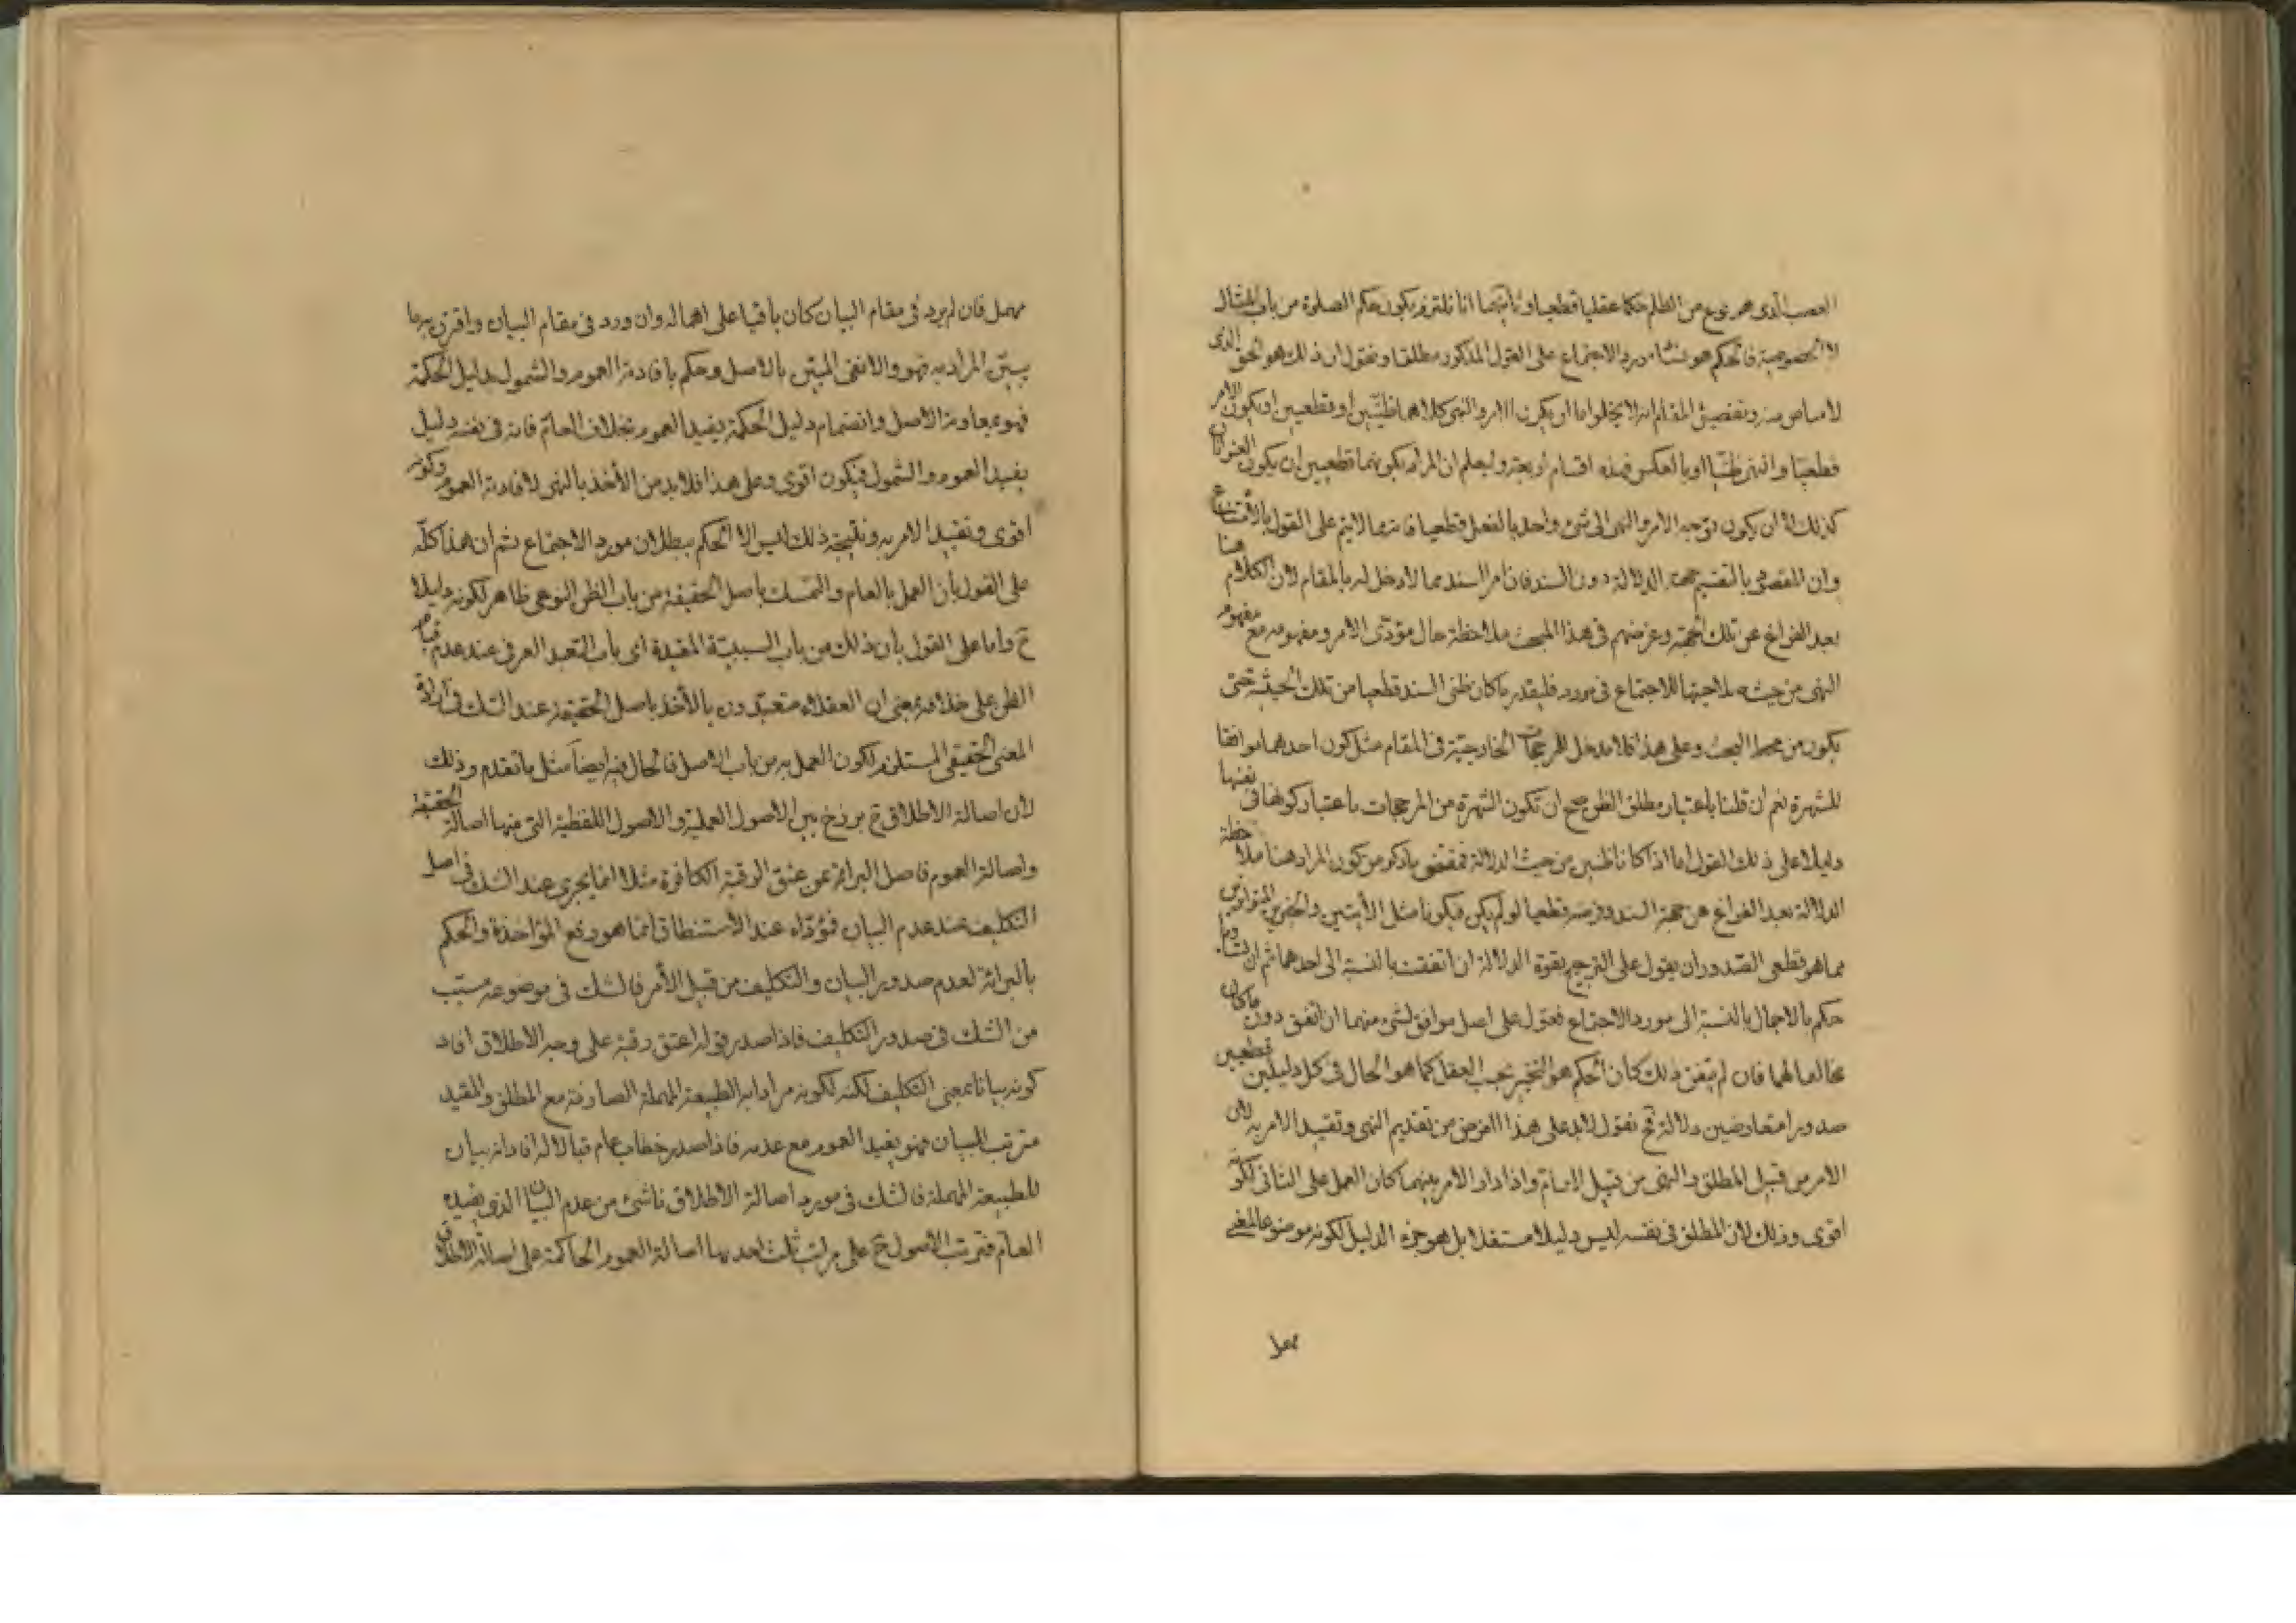 الغصب الذى هو نوع من الظلم حكما عقليا قطعيا وثانيهما انا نلتزم بكون حكم الصلوة من باب المثال
لا الخصوصية فالحكم هو مورد الاجتماع على القول المذكور مطلقا ونقول ان ذلك هو الحق الذى
لا مناص منه وتفصيل المقام انه لا يخلوا اما ان يكون الامر والنهى كلاهما ظنيّين او قطعيين او يكون الامر
قطعيّا والنهى ظنيّا او بالعكس فهذه اقسام اربعة وليعلم ان المراد بكونهما قطعيين ان يكون العنوانان
كذلك لا ان يكون توجه الامر والنهى الى شئ واحد بالفعل قطعيا فانه مما لا يتم على القول بالامتناع
وان المقصود بالتقسيم جهة الدلالة دون السند فان امر السند مما لا دخل له بالمقام لان الكلام هنا
بعد الفراغ عن تلك الجهة وغرضهم فى هذا المبحث ملاحظة حال مؤدّى الامر ومفهومه مع مفهوم
النهى من حيث صلاحيتها للاجتماع فى مورد فليقدر ما كان ظنى السند قطعيا من تلك الحيثية حتى
يكون من محط البحث وعلى هذا فلا مدخل للمرجحات الخارجيّة فى المقام مثل كون احدهما موافقا
للشهرة نعم ان قلنا باعتبار مطلق الظن صح ان تكون الشهرة من المرجحات باعتبار كونها فى نفسها
دليلا على ذلك القول اما اذا كانا ظنيين من حيث الدلالة فمقتضى ما ذكر من كون المراد هنا ملاحظة
الدلالة بعد الفراغ عن جهة السند وفرضه قطعيا لو لم يكن فيكونا مثل الايتين والخبرين المتواترين
مما هو قطعى الصّدور ان يعول على الترجيح بقوة الدلالة ان اتفقت بالنسبة الى احدهما ثم ان تساويا
حكم بالاجمال بالنسبة الى مورد الاجتماع فيعول على اصل موافق لشئ منهما ان اتفق دون ما كان
مخالفا لهما فان لم يتفق ذلك كان الحكم هو التخيير بحسب العقل كما هو الحال فى كل دليلين قطعيين
صدورا متعارضين دلالة فح نقول لابد على هذا الفرض من تقديم النهى وتقييد الامر به لان
الامر من قبيل المطلق والنهى من قبيل العام واذا دار الامر بينهما كان العمل على الثانى لكونه
اقوى وذلك لان المطلق فى نفسه ليس دليلا مستقلا بل هو جزء الدليل لكونه موضوعا لمعنى
مهمل
مهمل فان لم يرد فى مقام البيان كان باقيا على اهماله وان ورد فى مقام البيان واقترن به ما
يبيّن المراد به فهو والا نفى المبيّن بالاصل وحكم بافادته العموم والشمول بدليل الحكمة
فهو بمعاونة الاصل وانضمام دليل الحكمة يفيد العموم بخلاف العامّ فانه فى نفسه دليل
يفيد العموم والشمول فيكون اقوى وعلى هذا فلابد من الأخذ بالنهى لافادته العموم وكونه
اقوى وتقييد الامر به ونتيجة ذلك ليس الا الحكم ببطلان مورد الاجتماع ثم ان هذا كلّه
على القول بان العمل بالعام والتمسك باصل الحقيقة من باب الظن النوعى ظاهر لكونه دليلا
ح واما على القول بان ذلك من باب السببيّة المقيدة اى باب التعبد العرفى عند عدم قيام
الظن على خلافه بمعنى ان العقلاء متعبّدون بالأخذ باصل الحقيقة عند الشك فى ارادة
المعنى الحقيقى المستلزم لكون العمل به من باب الاصل فالحال فيه ايضاً مثل ما تقدم وذلك
لان اصالة الاطلاق ح برزخ بين الاصول العملية والاصول اللفظية التى منها اصالة الحقيقة
واصالة العموم فاصل البرائة عن عتق الرقبة الكافرة مثلا انما يجرى عند الشك فى اصل
التكليف عند عدم البيان فمؤدّاه عند الاستنطاق انما هو رفع المؤاخذة والحكم
بالبرائة لعدم صدور البيان والتكليف من قبل الأمر فالشك فى موضوعه مسبّب
من الشك فى صدور التكليف فاذا صدر قوله اعتق رقبة على وجه الاطلاق افاد
كونه بيانا بمعنى التكليف لكنه لكونه مرادا به الطبيعة المهملة الصادقة مع المطلق والمقيد
مترقب للبيان فهو يفيد العموم مع عدمه فاذا صدر خطاب عام قبالا له افاد انه بيان
للطبيعة المهملة فالشك فى مورد اصالة الاطلاق ناشئ من عدم البيان الذى يفيده
العامّ فترتب الاصول ح على مراتب ثلث احديها اصالة العموم الحاكمة على اصالة الاطلاق